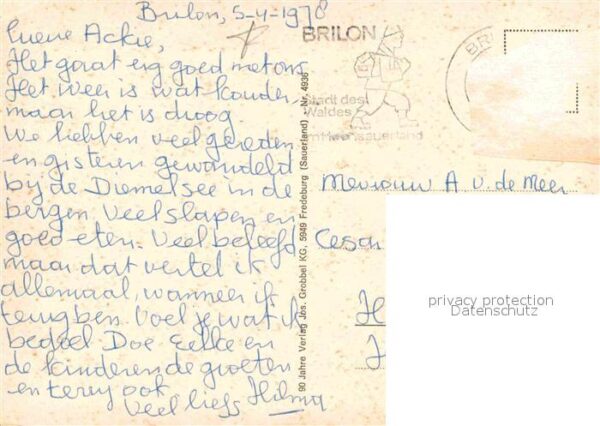 Brilon, 5-4-1978
Lieve Ackie,
Het gaat erg goed met ons
Het weer is wat kouder,
maar het is droog
We hebben veel gereden
en gisteren gewandeld
bij de Diemelsee in de
bergen. Veel slapen en
goed eten. Veel beleefd
maar dat vertel ik
allemaal, wanneer ik
terug ben. Voel je wat ik
bedoel Doe Eelke en
de kinderen de groeten
en terry ook
Veel liefs Hilma
BRILON
Stadt des
Waldes
im Hochsauerland
BRI
90 Jahre Verlag Jos. Grobbel KG, 5949 Fredeburg (Sauerland) - Nr. 4936
Mevrouw A v. de Meer
Cesar
H
privacy protection
Datenschutz